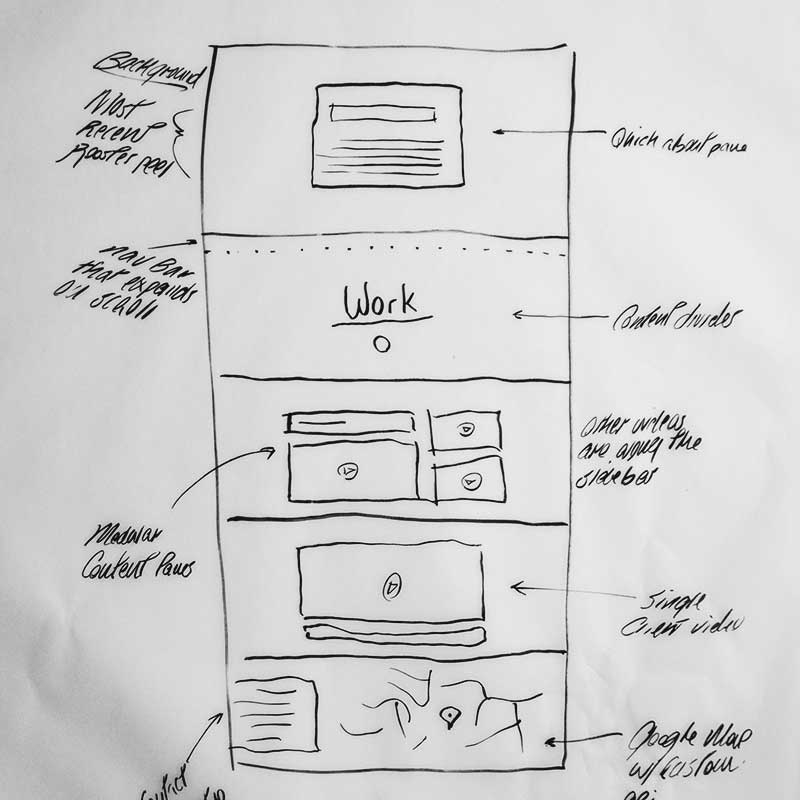 Background
Most
Recent
Rooster peel
Quick about pane
nav Bar
that expands
on scroll
Work
Content divider
Other videos
are along the
sidebar
Modular
Content Panes
Single
Client video
Google Map
w/ custom
Contact